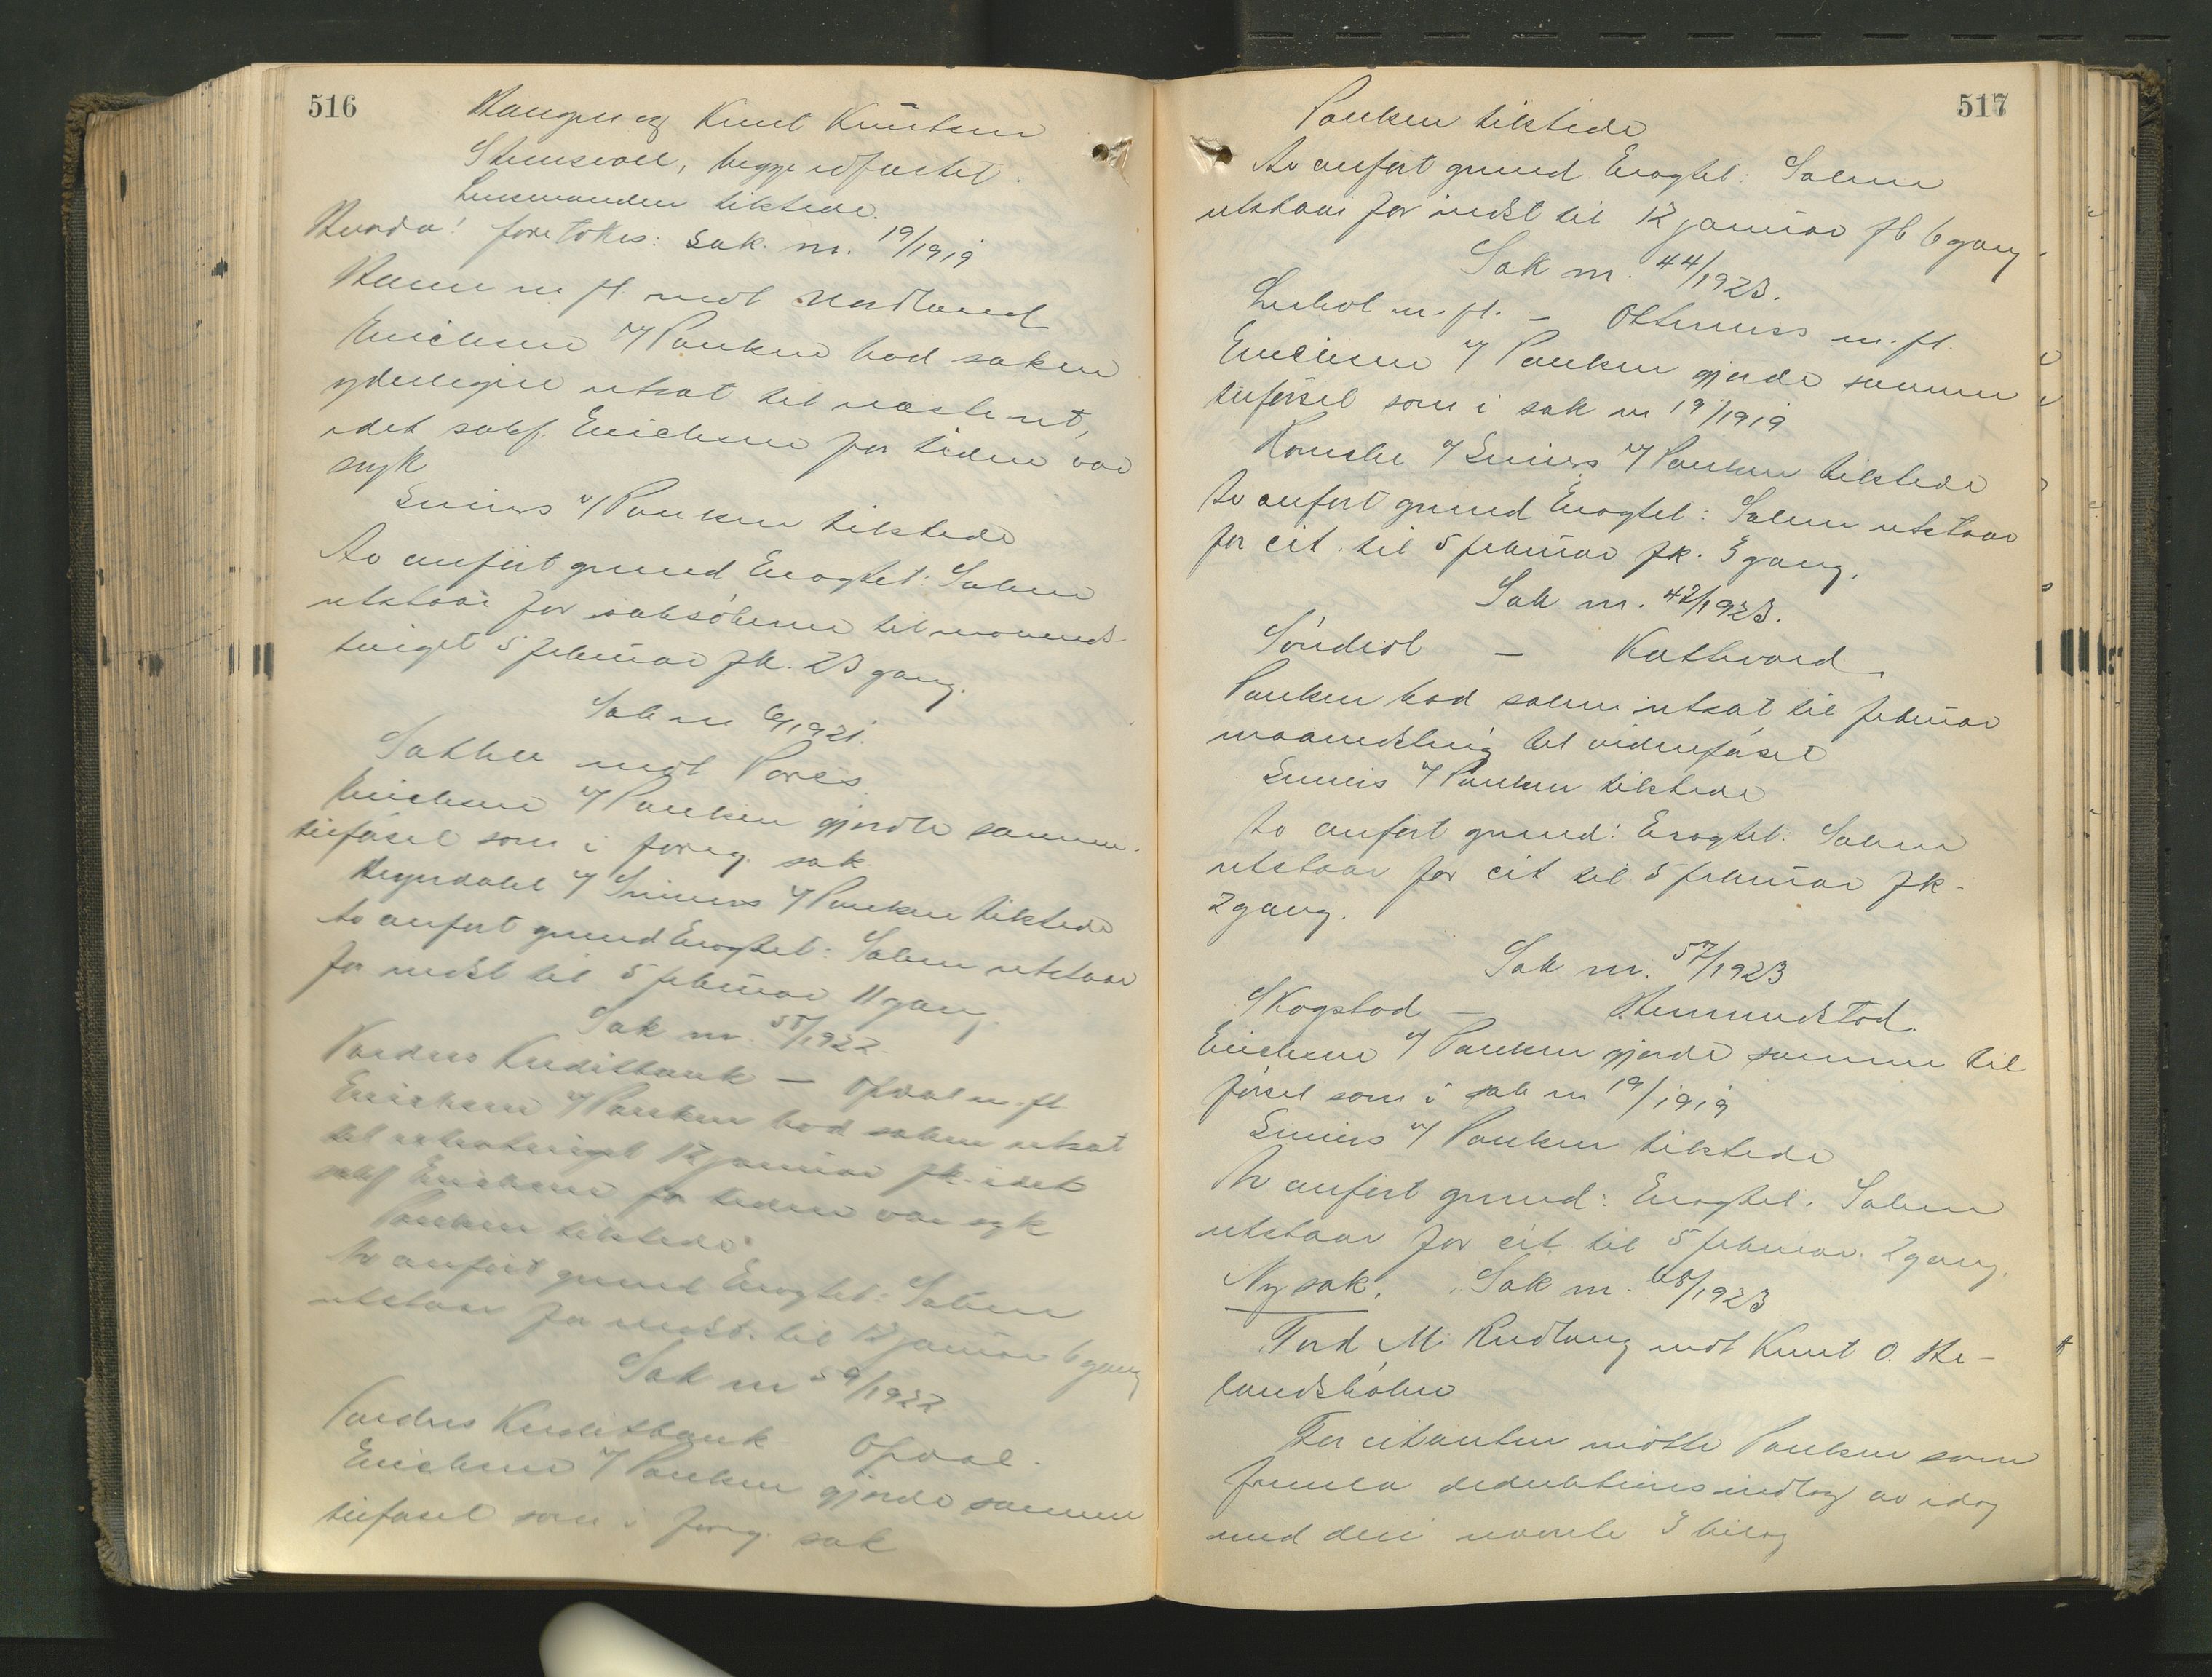 516
Haugen og Knut Knutsen
Stensvoll, begge edfæstet.
Lensmanden tilstede.
Hvorda! foretokes: Sak nr. 19/1919
m. fl. mot Nordland
Erichsen v/ Paulsen bad saken
yderligere utsat til næste ret,
idet sakf. Erichsen for tiden var
syk
v/ Paulsen tilstede
Av anført grund Eragtet: Saken
utstaar for saksökeren til maaneds-
tinget 5 februar f.k. 23 gang.
Sak nr 6/1921.
mot
Erichsen v/ Paulsen gjorde samme
tilførsel som i foreg. sak
v/ v/ Paulsen tilstede
Av anført grund Eragtet: Saken utstaar
for mdst til 5 februar 11 gang.
Sak nr. 58/1922
Valdres Kreditbank – Opdal m. fl
Erichsen v/ Paulsen bad saken utsat
til ekstratinget 12 januar f.k. idet
sakf Erichsen for tiden var syk
Paulsen tilstede
Av anført grund Eragtet: Saken
utstaar for mdst. til 12 januar 6 gang
Sak nr 59/1922
Valdres Kreditbank Opdal.
Erichsen v/ Paulsen gjorde samme
tilførsel som i foreg. sak
517
Paulsen tilstede
Av anført grund Eragtet: Saken
utstaar for mdst til 12 januar fk 6 gang.
Sak nr. 44/1923.
m. fl. – m. fl.
Erichsen v/ Paulsen gjorde samme
tilførsel som i sak nr 19/1919
v/ v/ Paulsen tilstede
Av anført grund Eragtet: Saken utstaar
for cit. til 5 februar fk. 3 gang.
Sak nr. 42/1923.
Söndrol –
Paulsen bad saken utsat til februar
maanedsting til videnførsel
v/ Paulsen tilstede
Av anført grund: Eragtet: Saken
utstaar for cit til 5 februar fk.
2 gang.
Sak nr. 57/1923
Skogstad – Hermundstad.
Erichsen v/ Paulsen gjorde samme til
førsel som i sak nr 19/1919
v/ Paulsen tilstede
Av anført grund: Eragtet. Saken
utstaar for cit. til 5 februar. 2 gang.
Ny sak. Sak nr. 65/1923
M. Rudlang mot Knut O. He-
landsholen
For citanten møtte Paulsen som
fremla deduktionsindlæg av idag
med deri nævnte 3 bilag